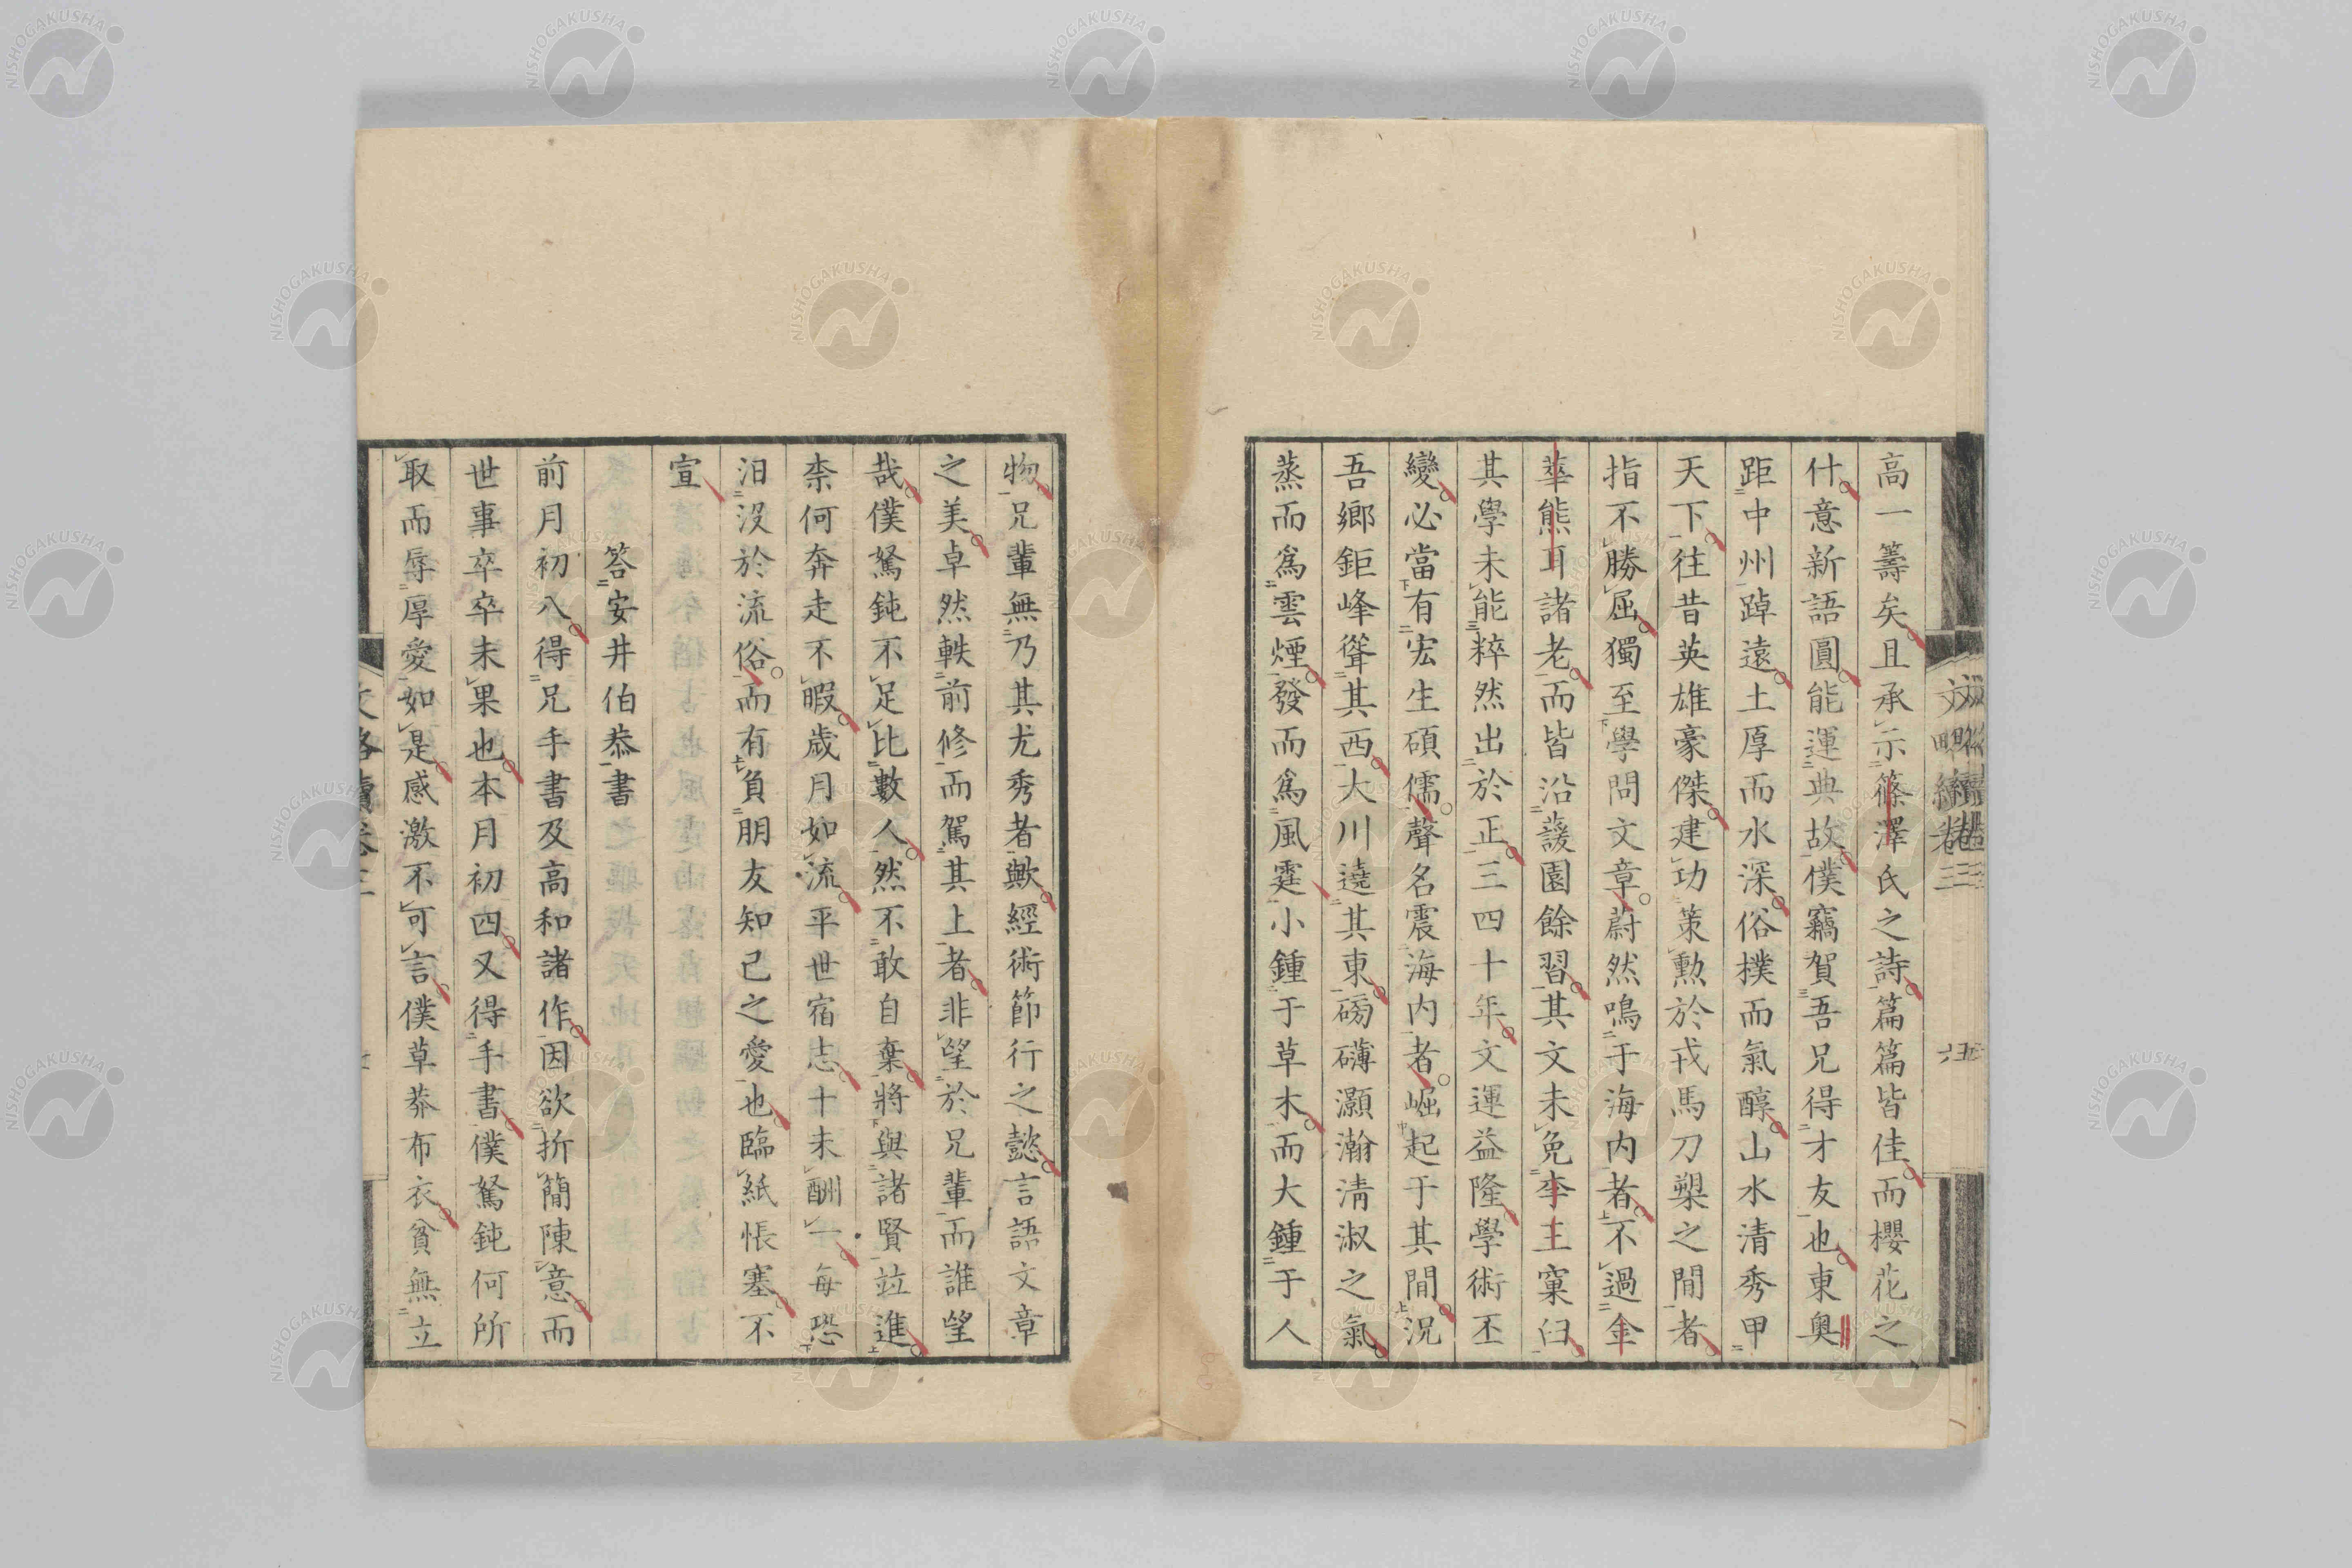 高一籌矣且承示篠澤氏之詩篇篇皆佳而櫻花之
什意新語圓能運典故僕竊賀吾兄得才友也東奧
距中州踔遠土厚而水深俗樸而氣醇山水清秀甲
天下往昔英雄豪傑建功策勲於戎馬刀槊之間者
指不勝屈獨至學問文章蔚然鳴于海内者不過金
華熊耳諸老而皆沿蘐園餘習其文未免李王窠臼
其學未能粹然出於正三四十年文運益隆學術丕
變必當有宏生碩儒聲名震海内者崛起于其間況
吾鄉鉅峰聳其西大川遶其東磅礴灝瀚淸淑之氣
蒸而爲雲煙發而爲風霆小鍾于草木而大鍾于人
物兄輩無乃其尤秀者歟經術節行之懿言語文章
之美卓然軼前修而駕其上者非望於兄輩而誰望
哉僕駑鈍不足比數人然不敢自棄將與諸賢竝進
柰何奔走不暇歳月如流平世宿志十未酬一每恐
汨没於流俗而有負朋友知己之愛也臨紙悵塞不
宣
答安井伯恭書
前月初八得兄手書及高和諸作因欲折簡陳意而
世事卒卒未果也本月初四又得手書僕駑鈍何所
取而辱厚愛如是感激不可言僕草莽布衣貧無立
文略續卷三